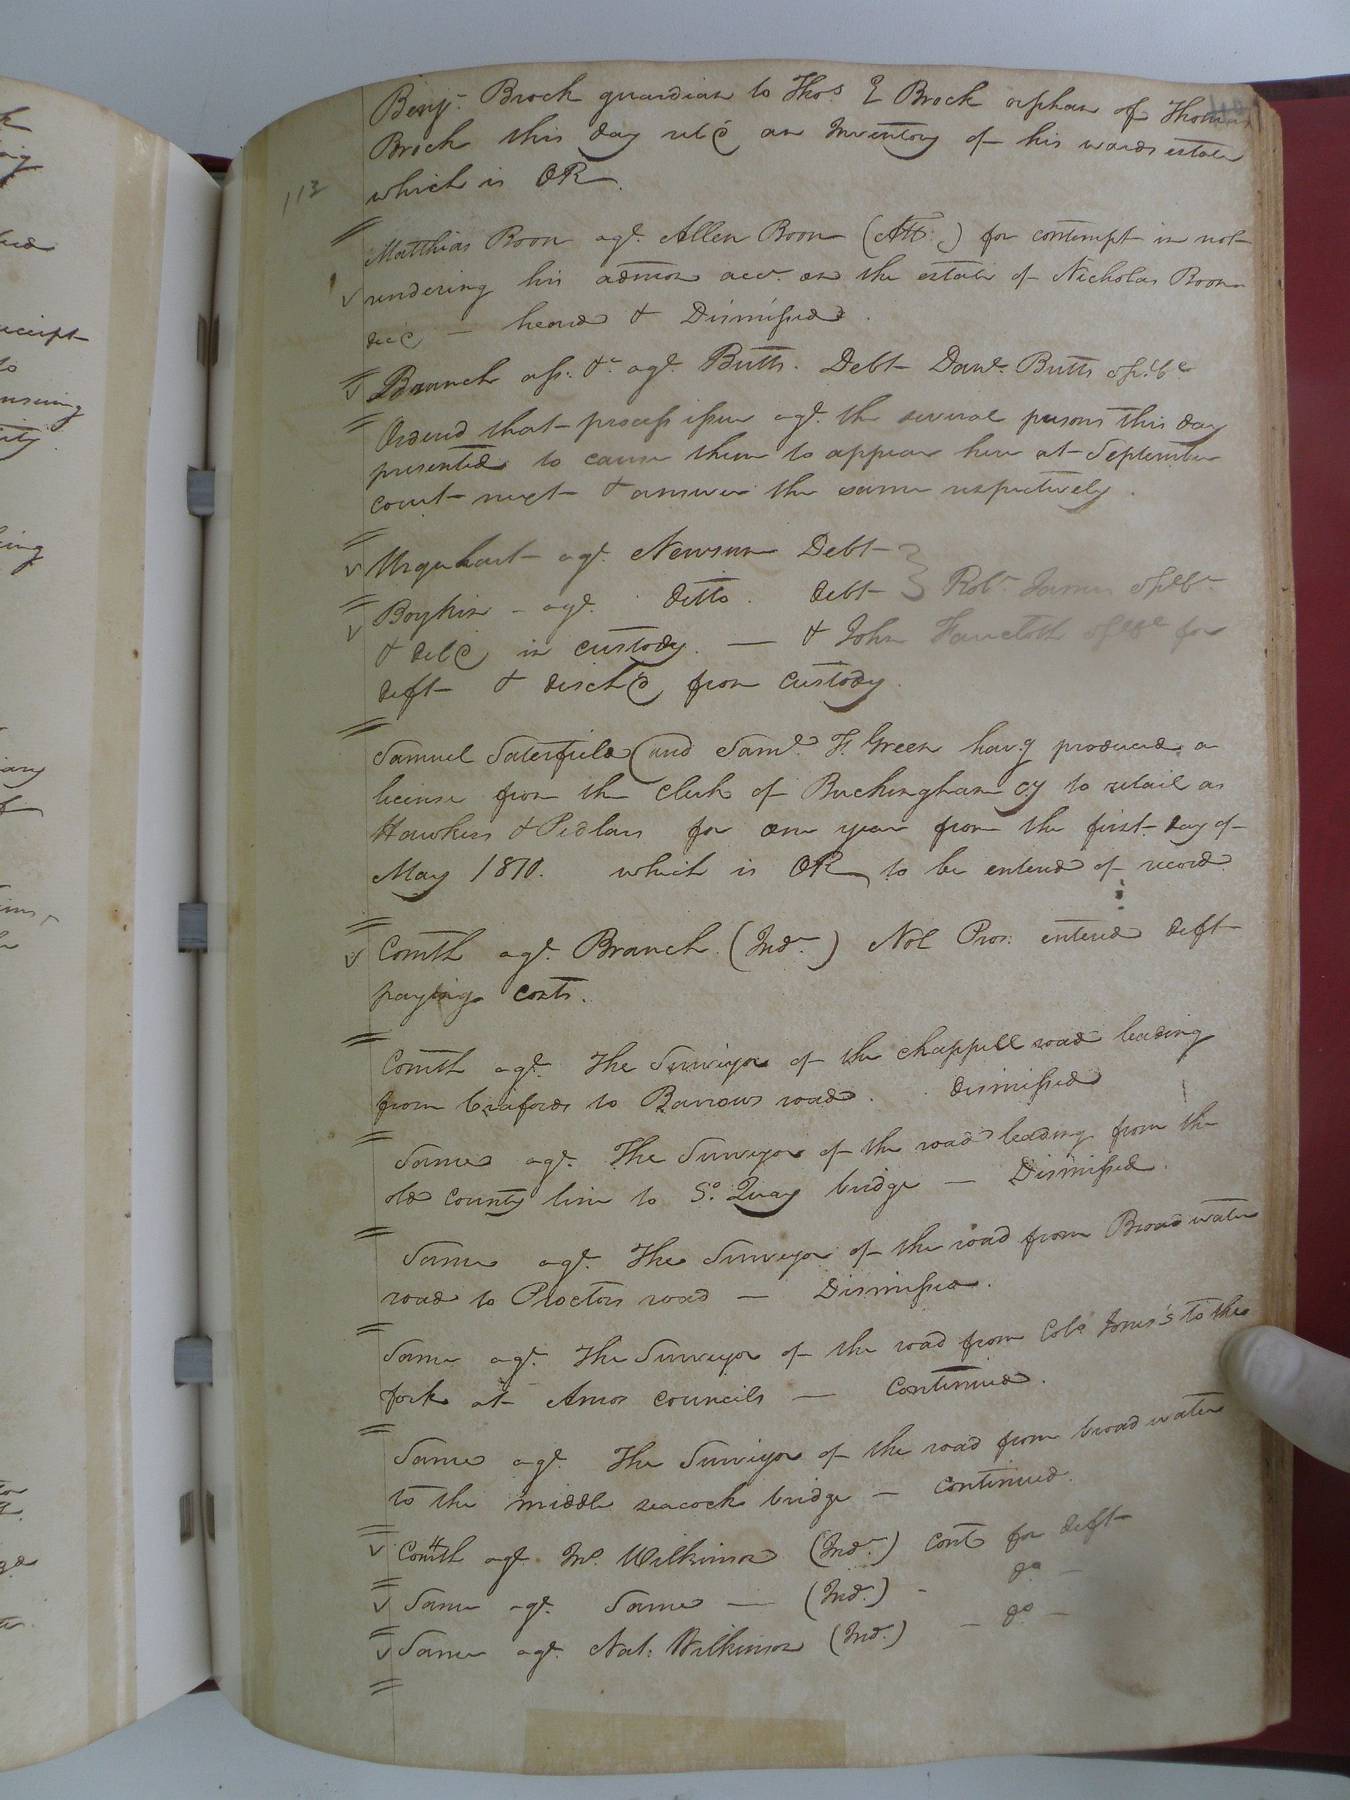 Benj. Brock guardian to Thos. E Brock orphan of Thomas
Brock this day ret'd an Inventory of his wards estate
which is OR
113
Matthias Boon agt. Allen Boon (Att.) for contempt in not
rendering his admon acct. on the estate of Nicholas Boon
dec'd — heard & Dismissed.
Branch ass. &c agt. Butts. Debt Danl. Butts spl. be
Ordered that process issue agt. the several persons this day
presented to cause them to appear here at September
court next & answer the same respectively.
Urquhart agt. Newsum Debt
Boykin - agt. ditto. debt } Robt. James spl be
& del'd in custody. — & John spl be for
deft & disch'd from custody.
Samuel Saterfield and Saml. F. Green hav'g produced a
license from the Clerk of Buckingham cy to retail as
Hawkers & Pedlars for one year from the first day of
May 1810. which is OR to be entered of record
Comth agt. Branch (Indt.) Nol Pros: entered deft
paying costs.
Comth agt. The Surveyor of the chappell road leading
from to Barrows road. dismissed
Same agt. The Surveyor of the road leading from the
old county line to So. Quay bridge — Dismissed.
Same agt. The Surveyor of the road from Broadwater
road to Proctors road — Dismissed.
Same agt. The Surveyor of the road from Colo Jones's to the
fork at Amos Councils — Continued.
Same agt. The Surveyor of the road from broad water
to the middle seacock bridge — continued.
Comth agt. Jno. Wilkinson (Indt.) cont for deft
Same agt. Same — (Indt.) - do —
Same agt. Nat: Wilkinson (Indt.) — do —